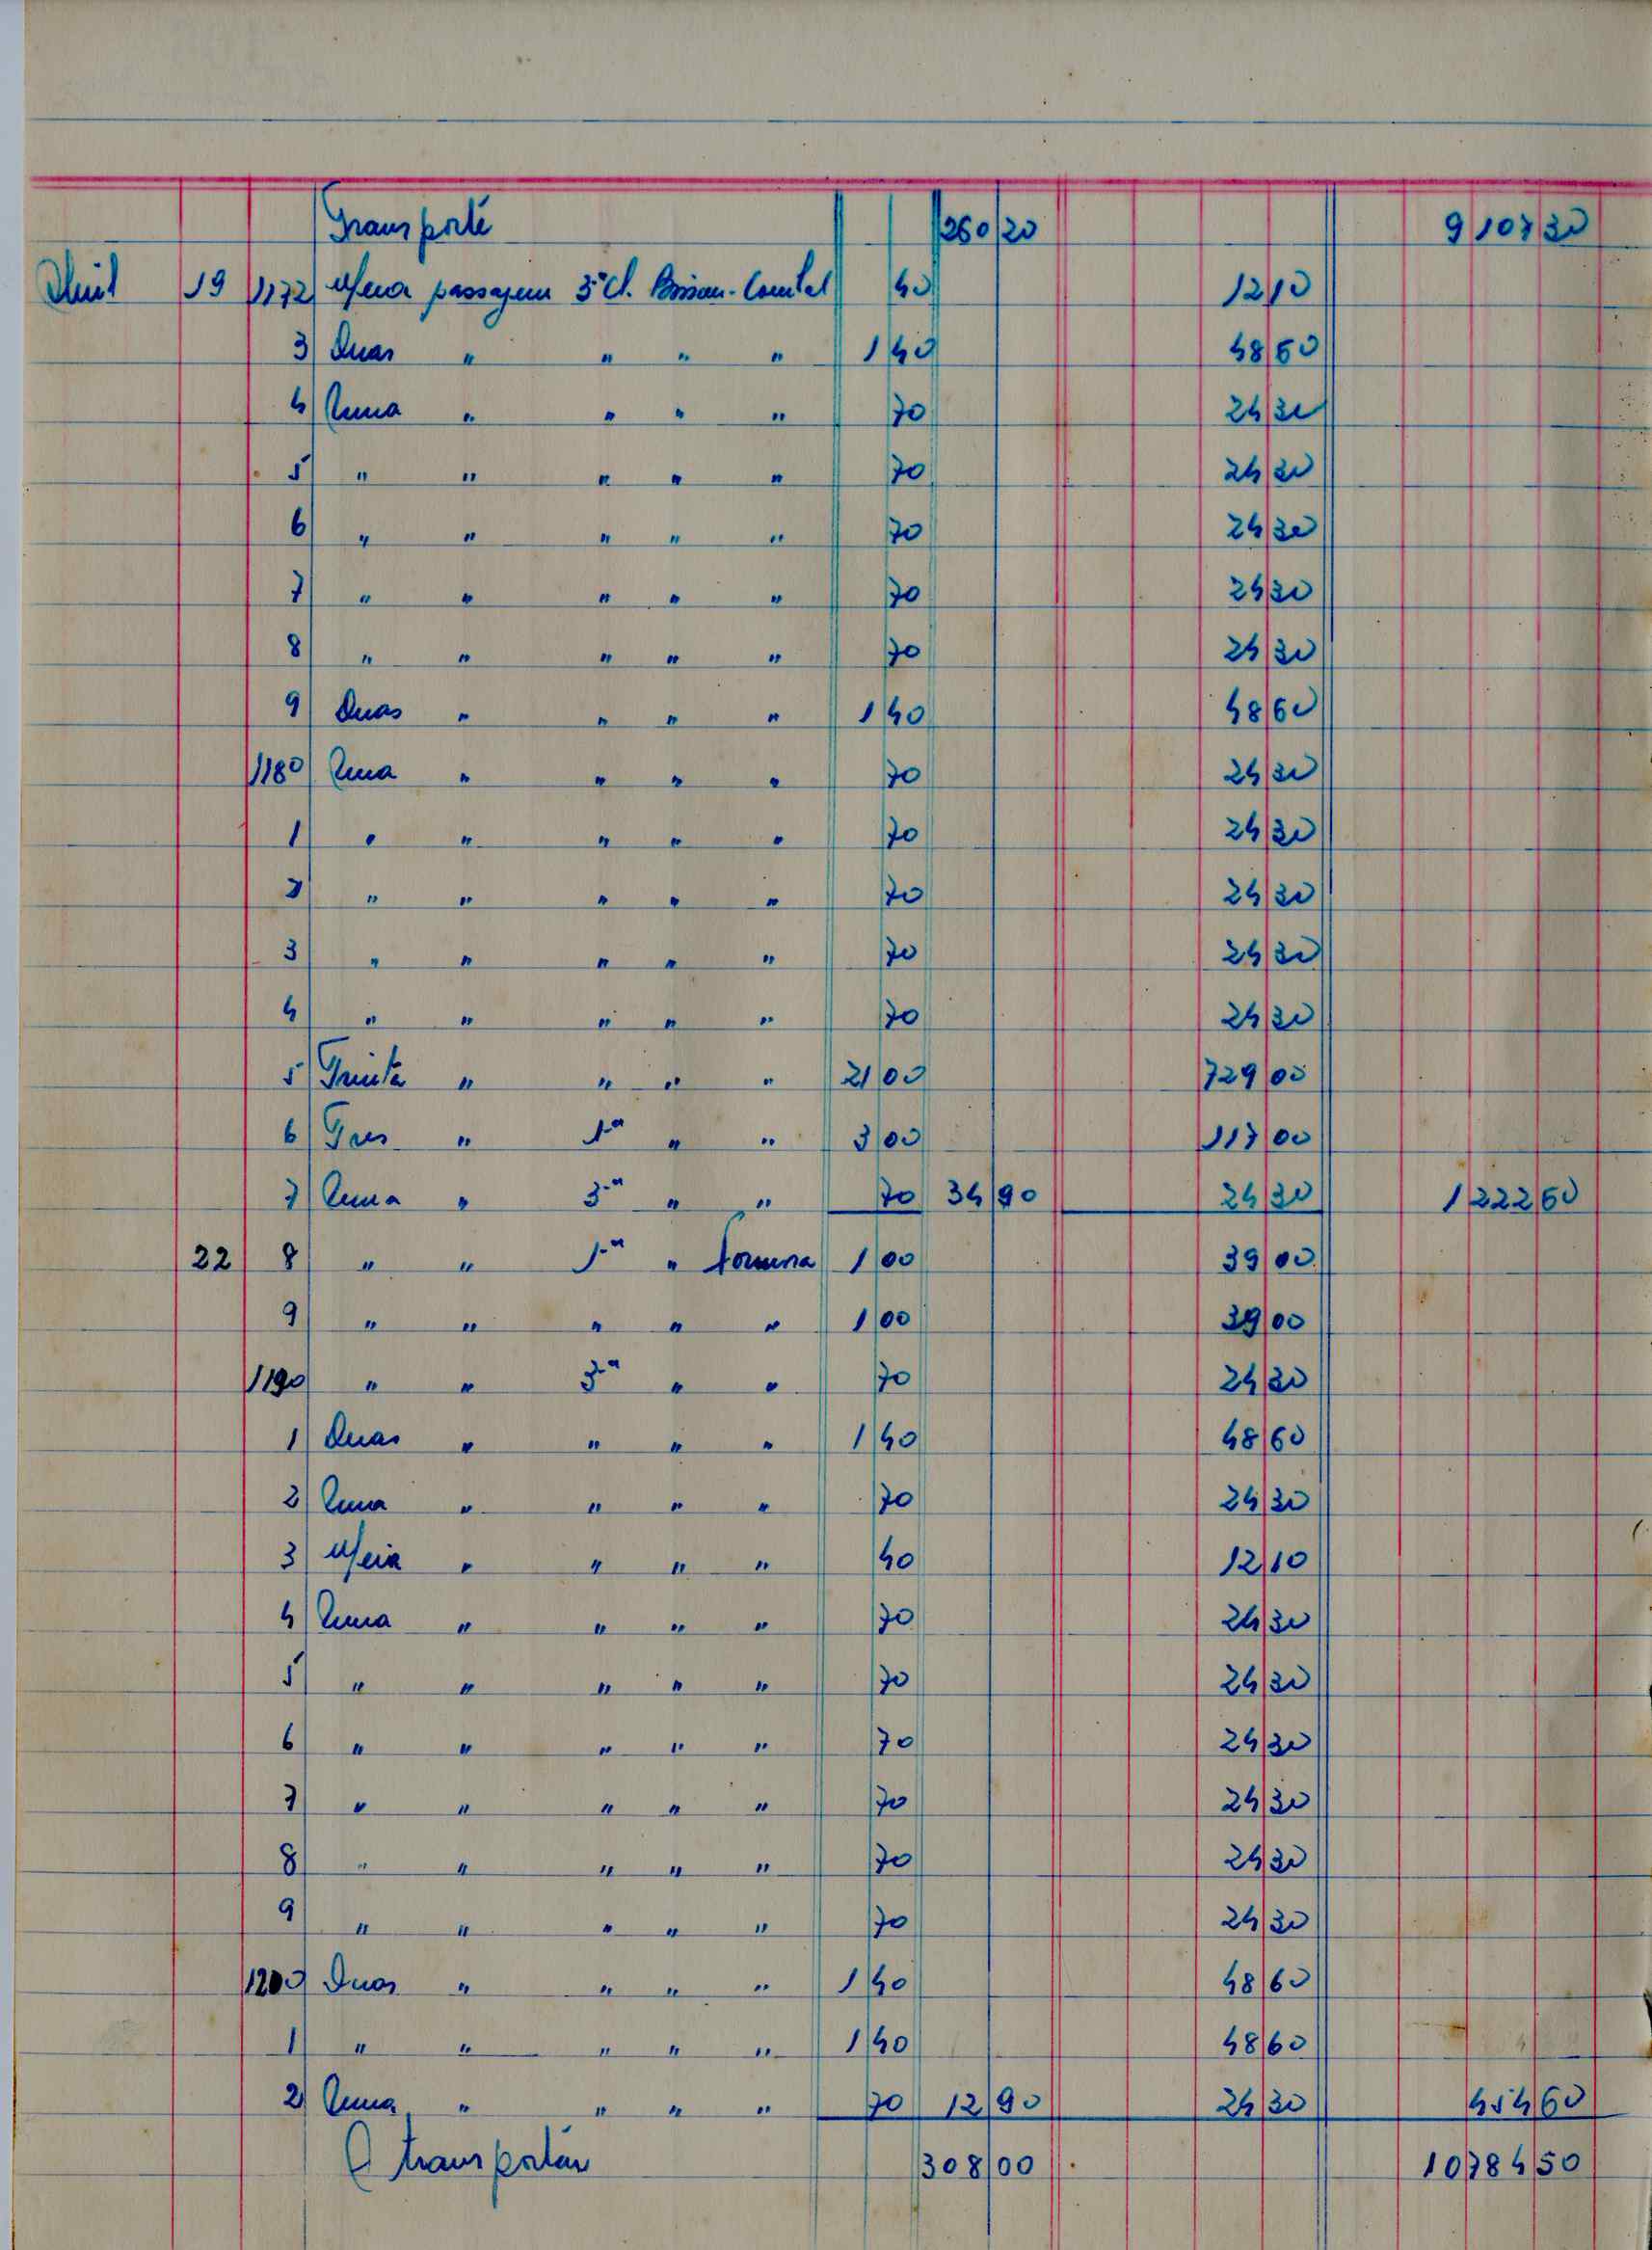 Transporte 260 20 9 107 30
Abril 19 1172 Meia passagem 3ª Cl. Bissau- 40 12 10
3 Duas " " " " 1 40 48 60
4 Uma " " " " 70 24 30
5 " " " " " 70 24 30
6 " " " " " 70 24 30
7 " " " " " 70 24 30
8 " " " " " 70 24 30
9 Duas " " " " 1 40 48 60
1180 Uma " " " " 70 24 30
1 " " " " " 70 24 30
2 " " " " " 70 24 30
3 " " " " " 70 24 30
4 " " " " " 70 24 30
5 Trinta " " " " 21 00 729 00
6 Tres " 1ª " " 3 00 117 00
7 Uma " 3ª " " 70 34 90 24 30 1 222 60
22 8 " " 1ª " 1 00 39 00
9 " " " " " 1 00 39 00
1190 " " 3ª " " 70 24 30
1 Duas " " " " 1 40 48 60
2 Uma " " " " 70 24 30
3 Meia " " " " 40 12 10
4 Uma " " " " 70 24 30
5 " " " " " 70 24 30
6 " " " " " 70 24 30
7 " " " " " 70 24 30
8 " " " " " 70 24 30
9 " " " " " 70 24 30
1200 Duas " " " " 1 40 48 60
1 " " " " " 1 40 48 60
2 Uma " " " " 70 12 90 24 30 454 60
A transportar 308 00 10784 50